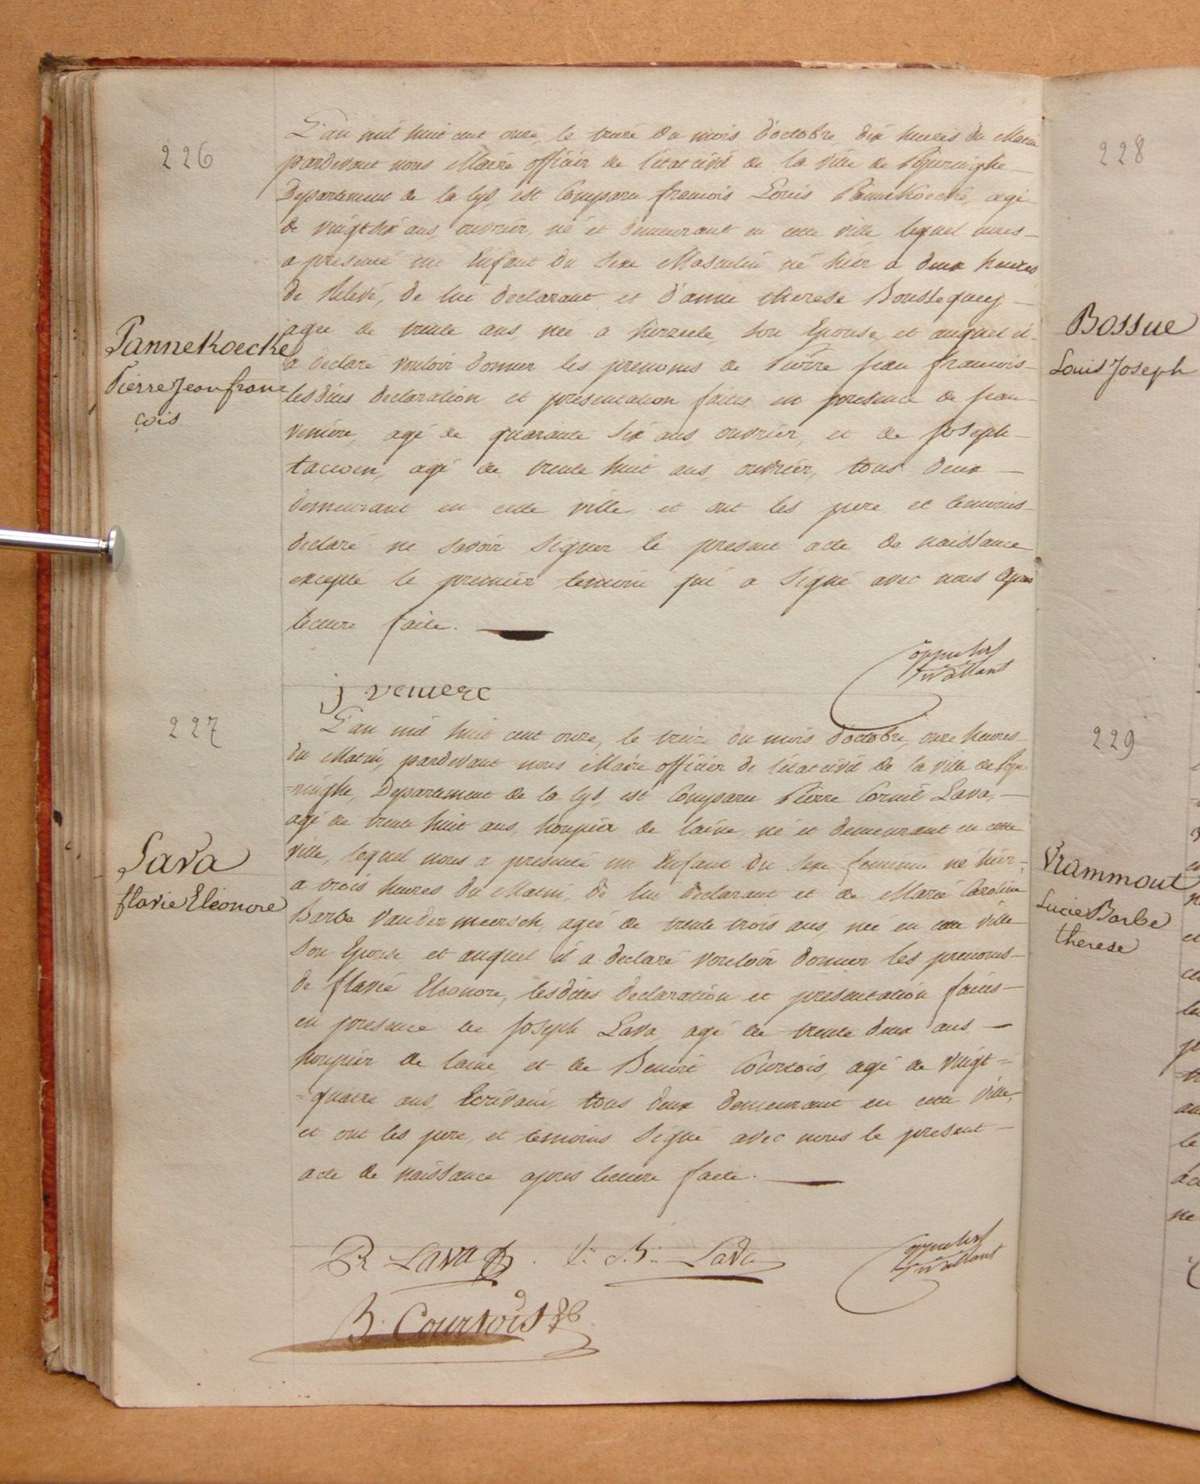 226
L'an mil huit cent onze, le treize du mois d'octobre dix heures du Matin
pardevant nous Maire officier de l'état civil de la ville de Poperinghe
Departement de la Lys, est Comparu francois Louis Pannekoecke, agé
de vingt six ans, ouvrier, né et demeurant en cette ville lequel nous
a presenté un Enfant du Sexe Masculin né hier a deux heures
de relevé, de lui declarant et d'anne therese Boustequey
agée de trente ans, née a herzeele son Epouse, et auquel il
a declaré vouloir donner les prenoms de Pierre jean francois
lesdites declaration et presentation faites en presence de jean
veniere, agé de quarante six ans ouvrier, et de joseph
agé de trente huit ans, ouvrier, tous deux
demeurant en cette ville et ont les pere et temoins
declaré ne savoir signer le present acte de naissance
excepté le premier temoin qui a signé avec nous apres
lecture faite.
Pannekoecke
Pierre Jean fran
çois
j veniere
227
L'an mil huit cent onze, le treize du mois d'octobre, onze heures
du Matin, pardevant nous Maire officier de l'état civil de la ville de Pope
=ringhe, Departement de la Lys, est Comparu Pierre Cornil Lava,
agé de trente huit ans, houpier de laine, né et demeurant en cette
ville, lequel nous a presenté un Enfant du Sexe feminin né hier
a trois heures du Matin, de lui declarant et de Marie Caroline
Barbe Vandermeersch, agée de trente trois ans, née en cette ville
son Epouse et auquel il a declaré vouloir donner les prenoms
de flavie Eleonore, lesdites declaration et presentation faites
en presence de joseph Lava agé de trente deux ans
houpier de laine et de Benoit Courtois, agé de vingt=
=quatre ans, Ecrivain, tous deux demeurant en cette ville,
et ont les pere et temoins signé avec nous le present
acte de naissance apres lecture faite.
Lava
flavie Eleonore
Lava
Lava
B. Courtois
228
Bossue
Louis Joseph
229
Vrammout
Lucie Barbe
therese